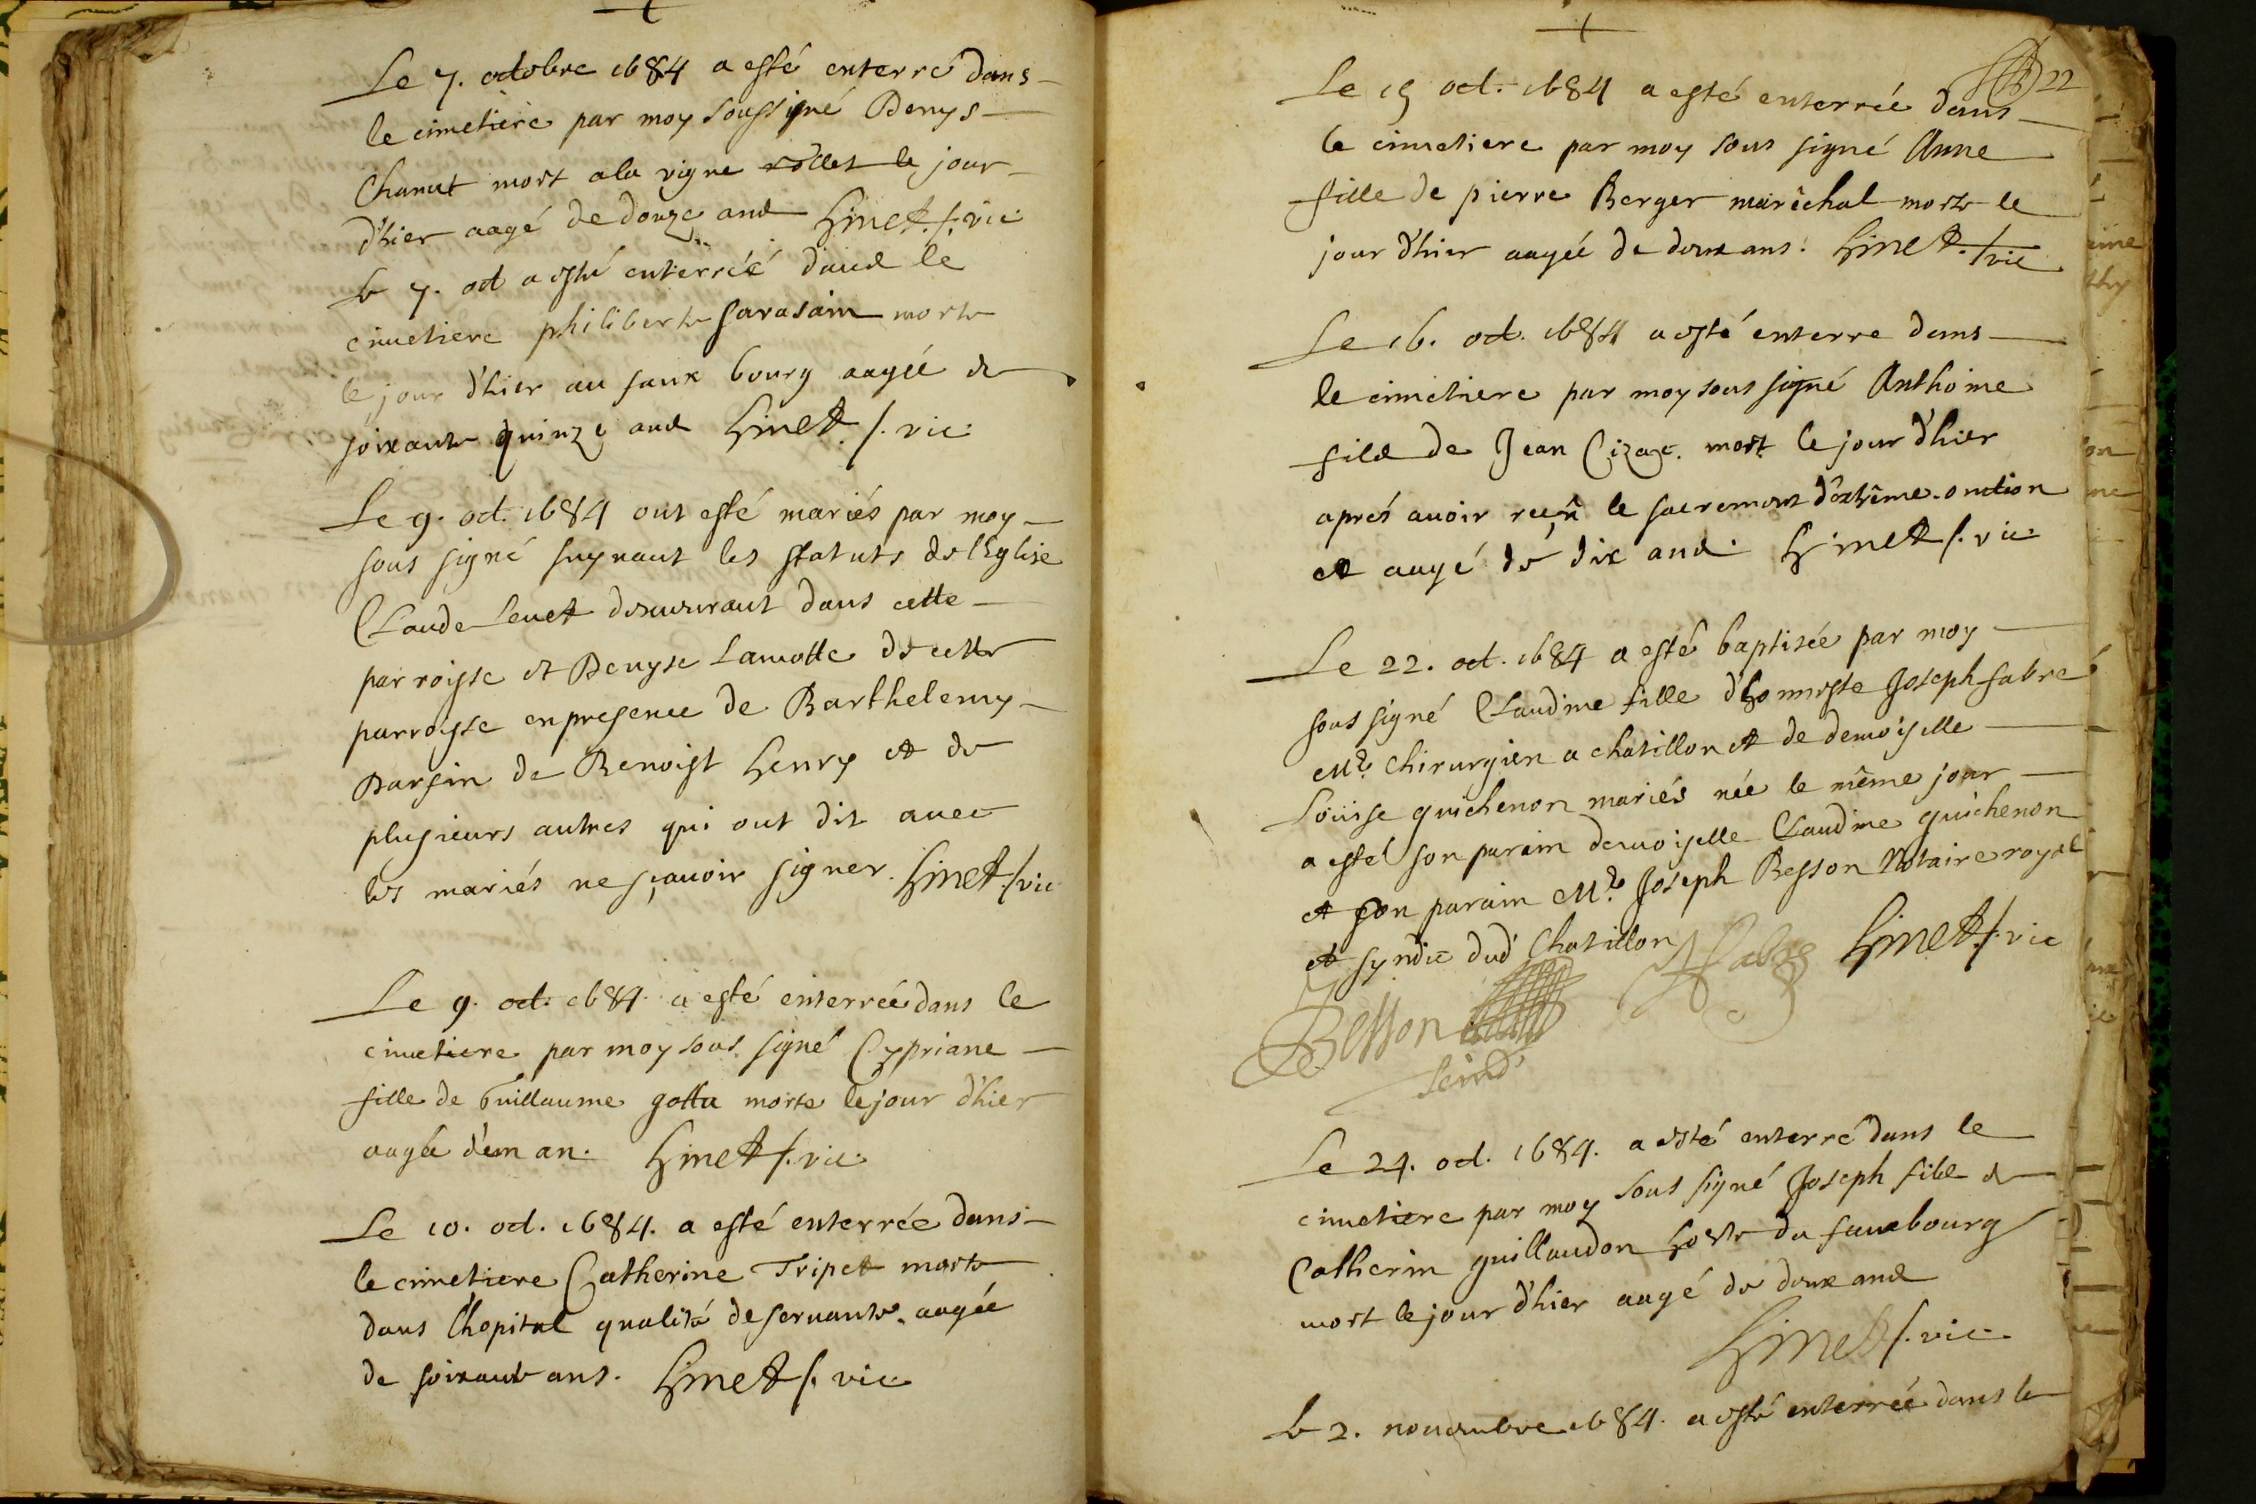 Le 7. octobre 1684 a esté enterré dans
le cimetiere par moy soussigné Denys
Chanut mort a la vigne rollet le jour
d'hier aagé de douze ans Hinet./.vic
le 7. oct a esté enterréé dans le
cimetiere philiberte sarasain morte
le jour d'hier au faux bourg aagée de
soixante quinze ans Hinet./.vic
Le 9. oct. 1684 ont esté mariés par moy
sous signé suyuant les statuts de l'Eglise
Claude Leuet demeurant dans cette
parroisse et Denyse Lamotte de cette
parroysse en presence de Barthelemy
Darsin de Benoist henry et de
plusieurs autres qui ont dit auec
les mariés ne sçauoir signer. Hinet./vic
Le 9. oct. 1684 a esté enterrée dans le
cimetiere par moy sous signé Cypriane
fille de Guillaume gotta morte le jour d'hier
aagée d'un an. Hinet./.vic
Le 10. oct. 1684. a esté enterrée dans
le cimetiere Catherine Tripet morte
dans l'hopital qualité de seruante. aagée
de soixante ans. Hinet./. vic
22
Le 15 oct. 1684 a esté enterrée dans
le cimetiere par moy sous signé Anne
fille de pierre Berger marêchal morte le
jour d'hier aagée de deux ans. Hinet./vic
Le 16. oct. 1684 a esté enterre dans
le cimetiere par moy sous signé Anthoine
fils de Jean Cizaze. mort le jour d'hier
aprés auoir receû le sacrement d'extrême-onction
et aagé de dix ans. Hinet./.vic
Le 22. oct. 1684 a esté baptisée par moy
sous signé Claudine fille d'honneste Joseph fabre
Mre. chirurgien a chatillon et de demoiselle
Loüise guichenon mariés née le même jour
a esté son parain demoiselle Claudine guichenon
et son parain Mre. Joseph Besson Notaire royal
et syndic dud Chatillon Fabre Hinet./.vic
Besson
sind
Le 24. oct. 1684. a esté enterré dans le
cimetiere par moy sous signé Joseph fils de
Catherin guillaudon hoste du fauxbourg
mort le jour d'hier aagé de deux ans
Hinet./.vic
le 2. nouembre 1684. a esté enterrée dans le